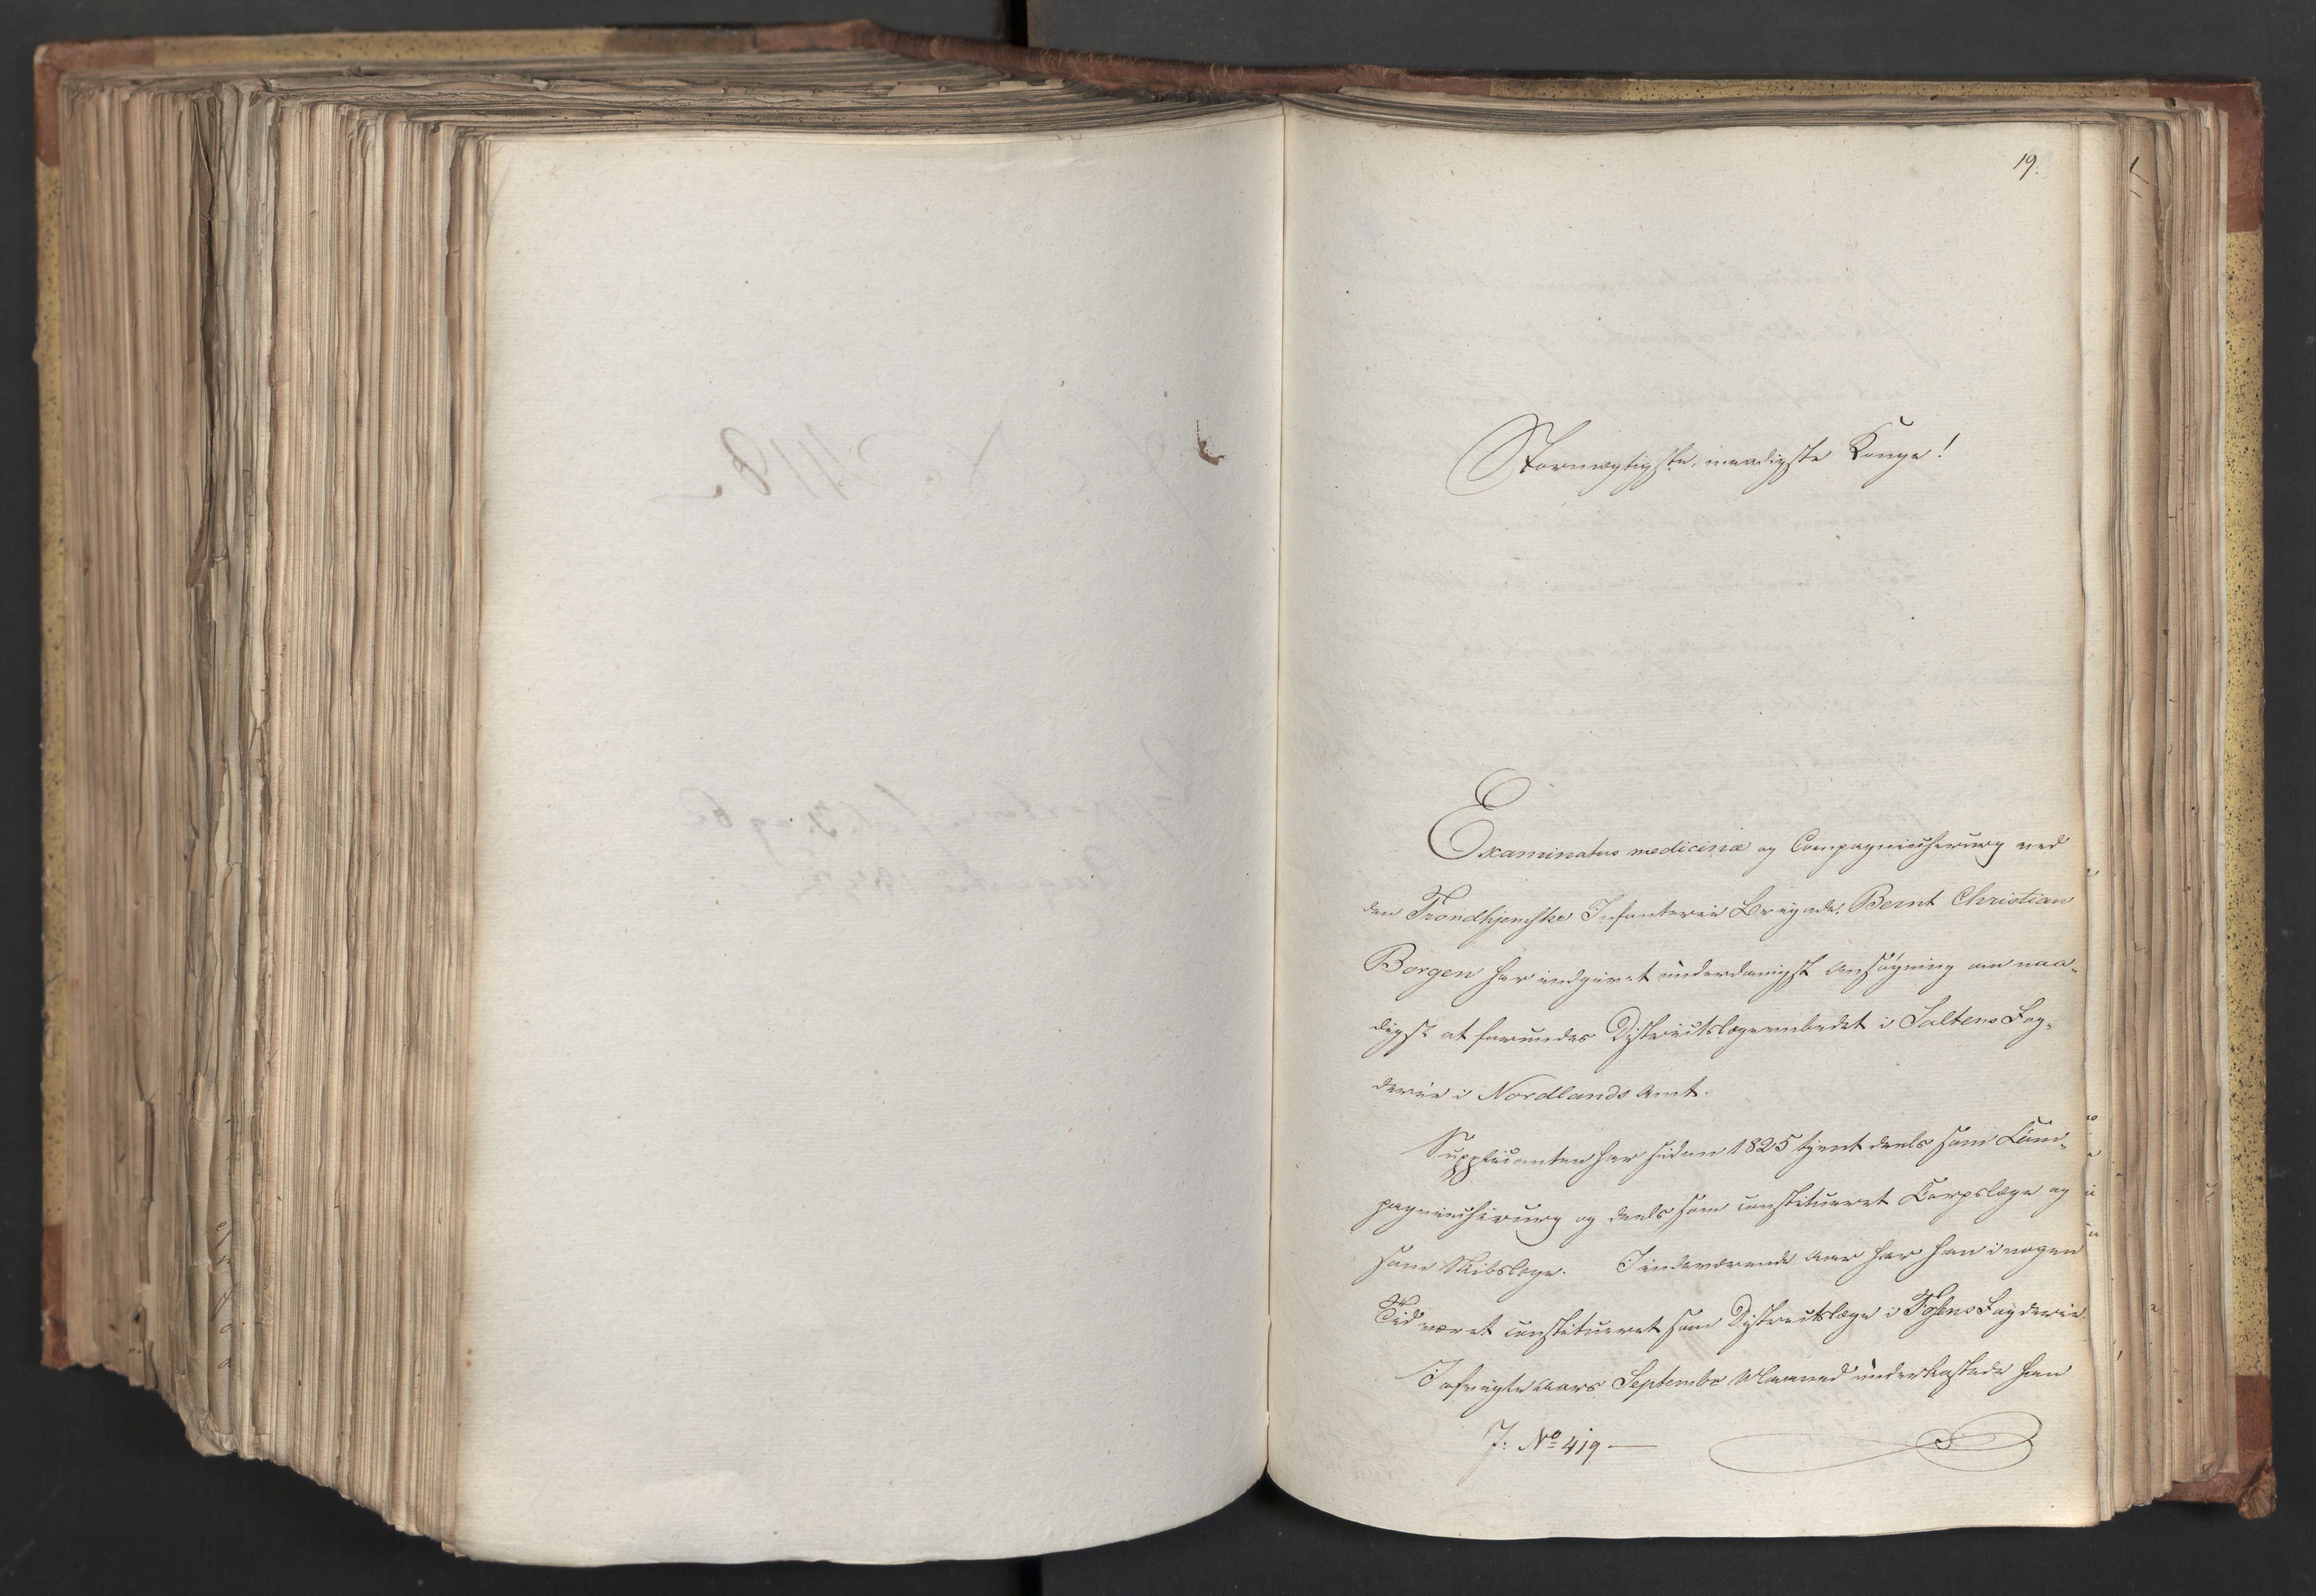 19.
Stormægtigste, naadigste Konge!
Examinatus medicinæ og Compagniechirurg ved
den Trondhjemske Infanterie Brigade, Bernt Christian
Borgen har indgivet underdanigst Ansøgning om naa-
digst at forundes Districtslægeembedet i Saltens Fog-
derie i Nordlands Amt.
Supplicanten har siden 1825 tjent deels som Com-
pagniechirurg og deels som constitueret Corpslæge og
som Skibslæge. I indeværende Aar har han i nogen
Tid været constitueret som Districtslæge i Fosens Fogderie.
I afvigte Aars September Maaned underkastede han
J: No 419